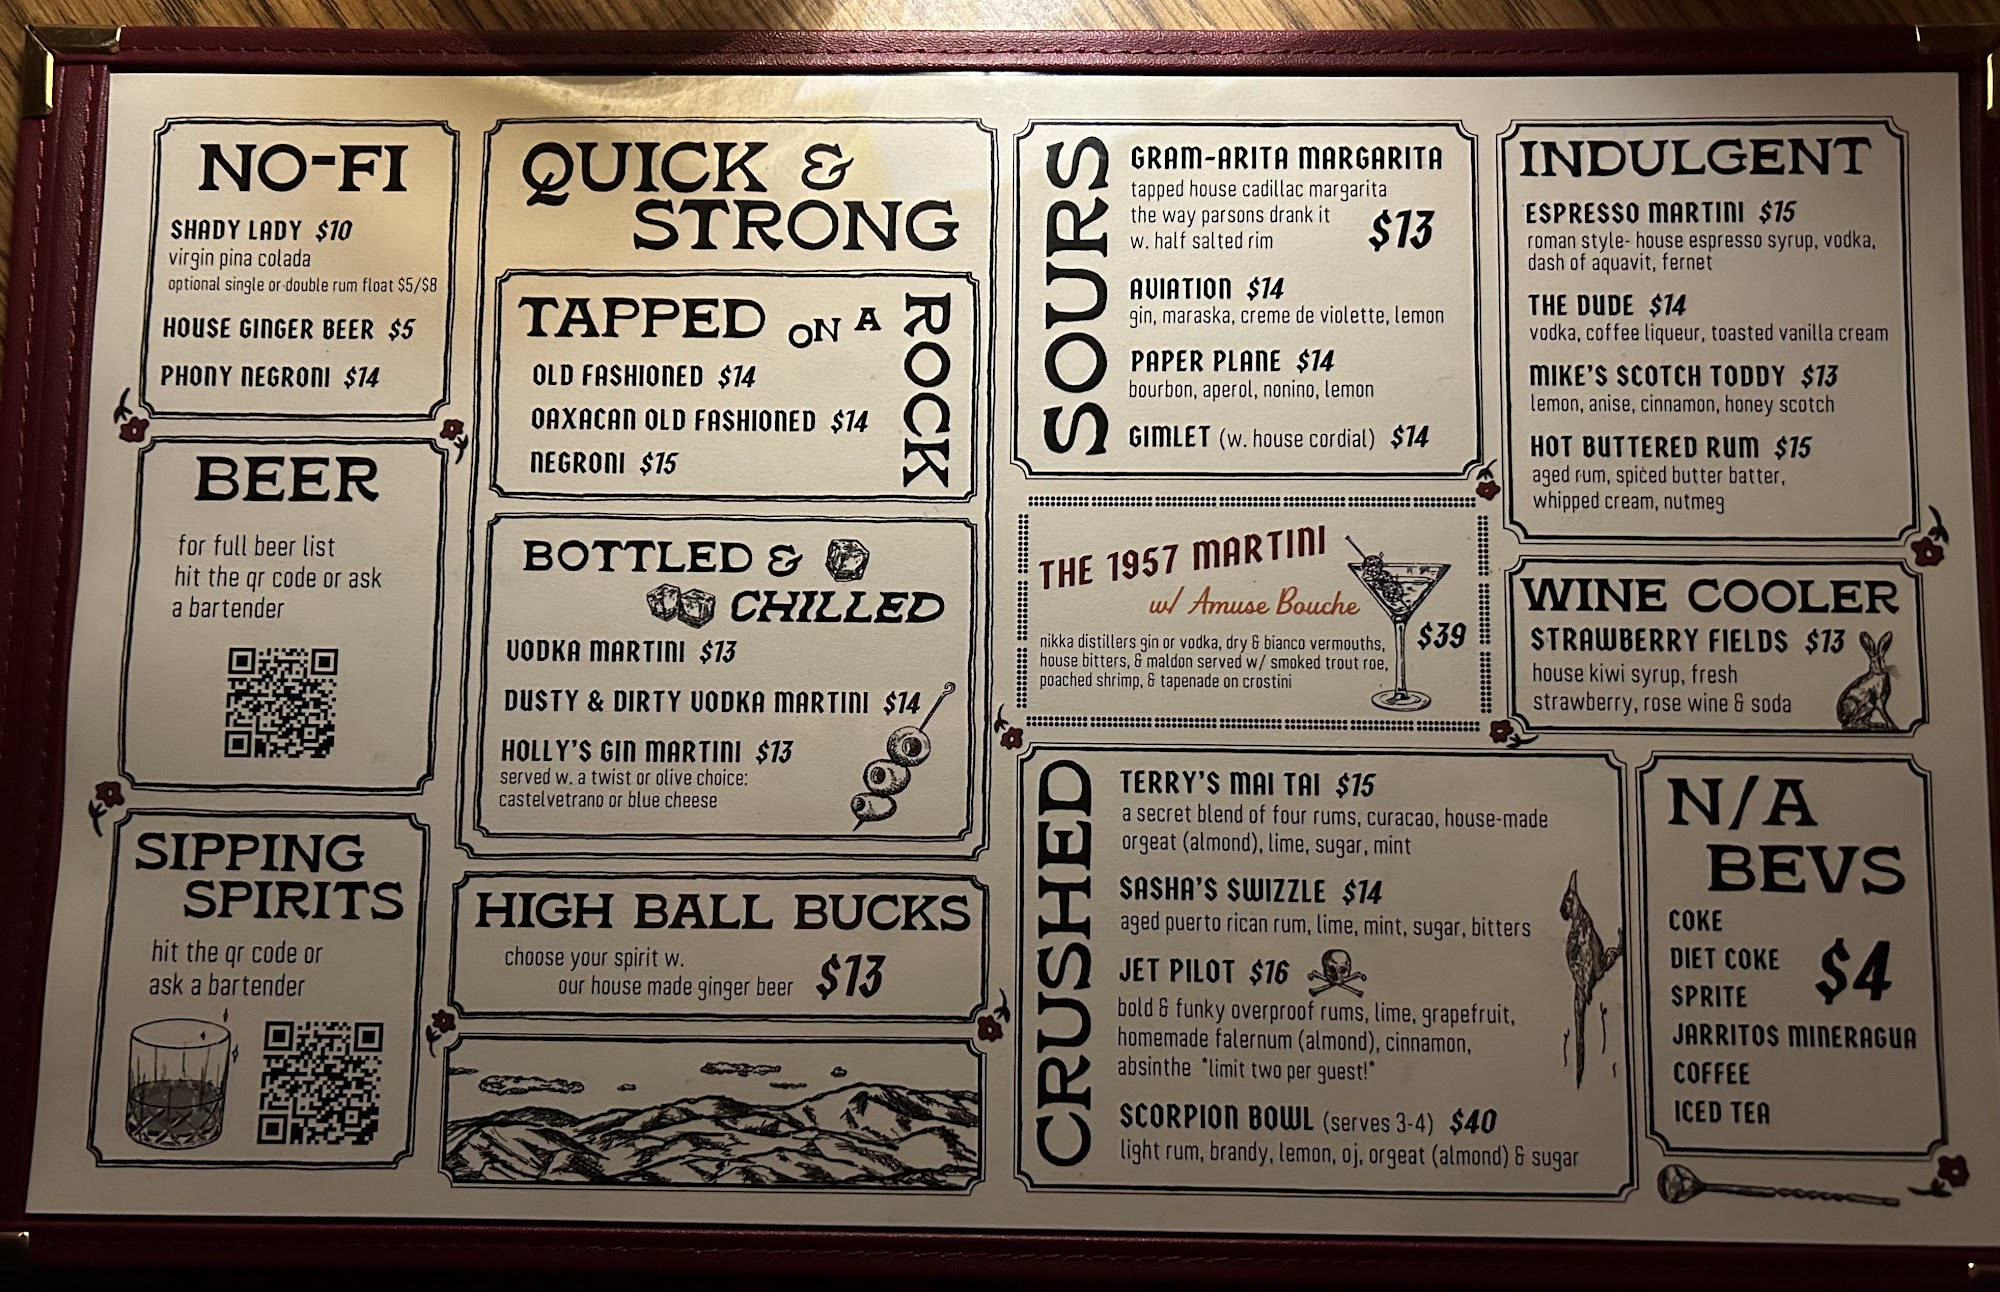 NO-FI
SHADY LADY $10
virgin pina colada
optional single or double rum float $5/$8
HOUSE GINGER BEER $5
PHONY NEGRONI $14
BEER
for full beer list
hit the qr code or ask
a bartender
SIPPING
SPIRITS
hit the qr code or
ask a bartender
QUICK &
STRONG
TAPPED ON A
ROCK
OLD FASHIONED $14
OAXACAN OLD FASHIONED $14
NEGRONI $15
BOTTLED &
CHILLED
VODKA MARTINI $13
DUSTY & DIRTY VODKA MARTINI $14
HOLLY'S GIN MARTINI $13
served w. a twist or olive choice:
castelvetrano or blue cheese
HIGH BALL BUCKS
choose your spirit w.
our house made ginger beer $13
SOURS
GRAM-ARITA MARGARITA
tapped house cadillac margarita
the way parsons drank it
w. half salted rim $13
AVIATION $14
gin, maraska, creme de violette, lemon
PAPER PLANE $14
bourbon, aperol, nonino, lemon
GIMLET (w. house cordial) $14
THE 1957 MARTINI
w/ Amuse Bouche
$39
nikka distillers gin or vodka, dry & bianco vermouths,
house bitters, & maldon served w/ smoked trout roe,
poached shrimp, & tapenade on crostini
CRUSHED
TERRY'S MAI TAI $15
a secret blend of four rums, curacao, house-made
orgeat (almond), lime, sugar, mint
SASHA'S SWIZZLE $14
aged puerto rican rum, lime, mint, sugar, bitters
JET PILOT $16
bold & funky overproof rums, lime, grapefruit,
homemade falernum (almond), cinnamon,
absinthe *limit two per guest!*
SCORPION BOWL (serves 3-4) $40
light rum, brandy, lemon, oj, orgeat (almond) & sugar
INDULGENT
ESPRESSO MARTINI $15
roman style- house espresso syrup, vodka,
dash of aquavit, fernet
THE DUDE $14
vodka, coffee liqueur, toasted vanilla cream
MIKE'S SCOTCH TODDY $13
lemon, anise, cinnamon, honey scotch
HOT BUTTERED RUM $15
aged rum, spiced butter batter,
whipped cream, nutmeg
WINE COOLER
STRAWBERRY FIELDS $13
house kiwi syrup, fresh
strawberry, rose wine & soda
N/A
BEVS
COKE
DIET COKE
$4
SPRITE
JARRITOS MINERAGUA
COFFEE
ICED TEA